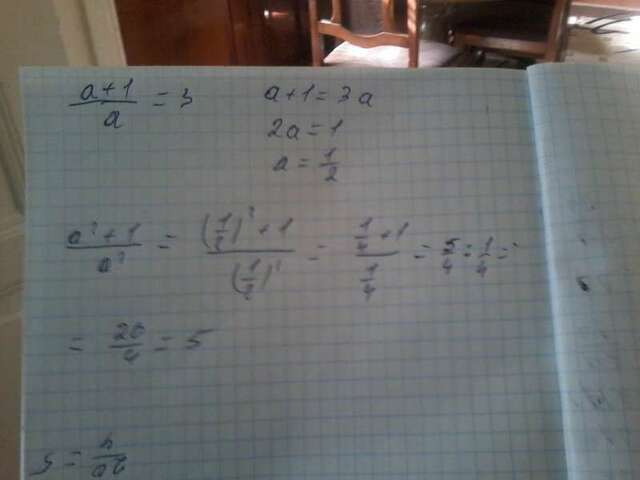 (a+1)/a = 3
a+1=3a
2a=1
a = 1/2
(a²+1)/a² = ((1/2)²+1)/(1/2)² = (1/4+1)/(1/4) = 5/4 : 1/4 =
= 20/4 = 5